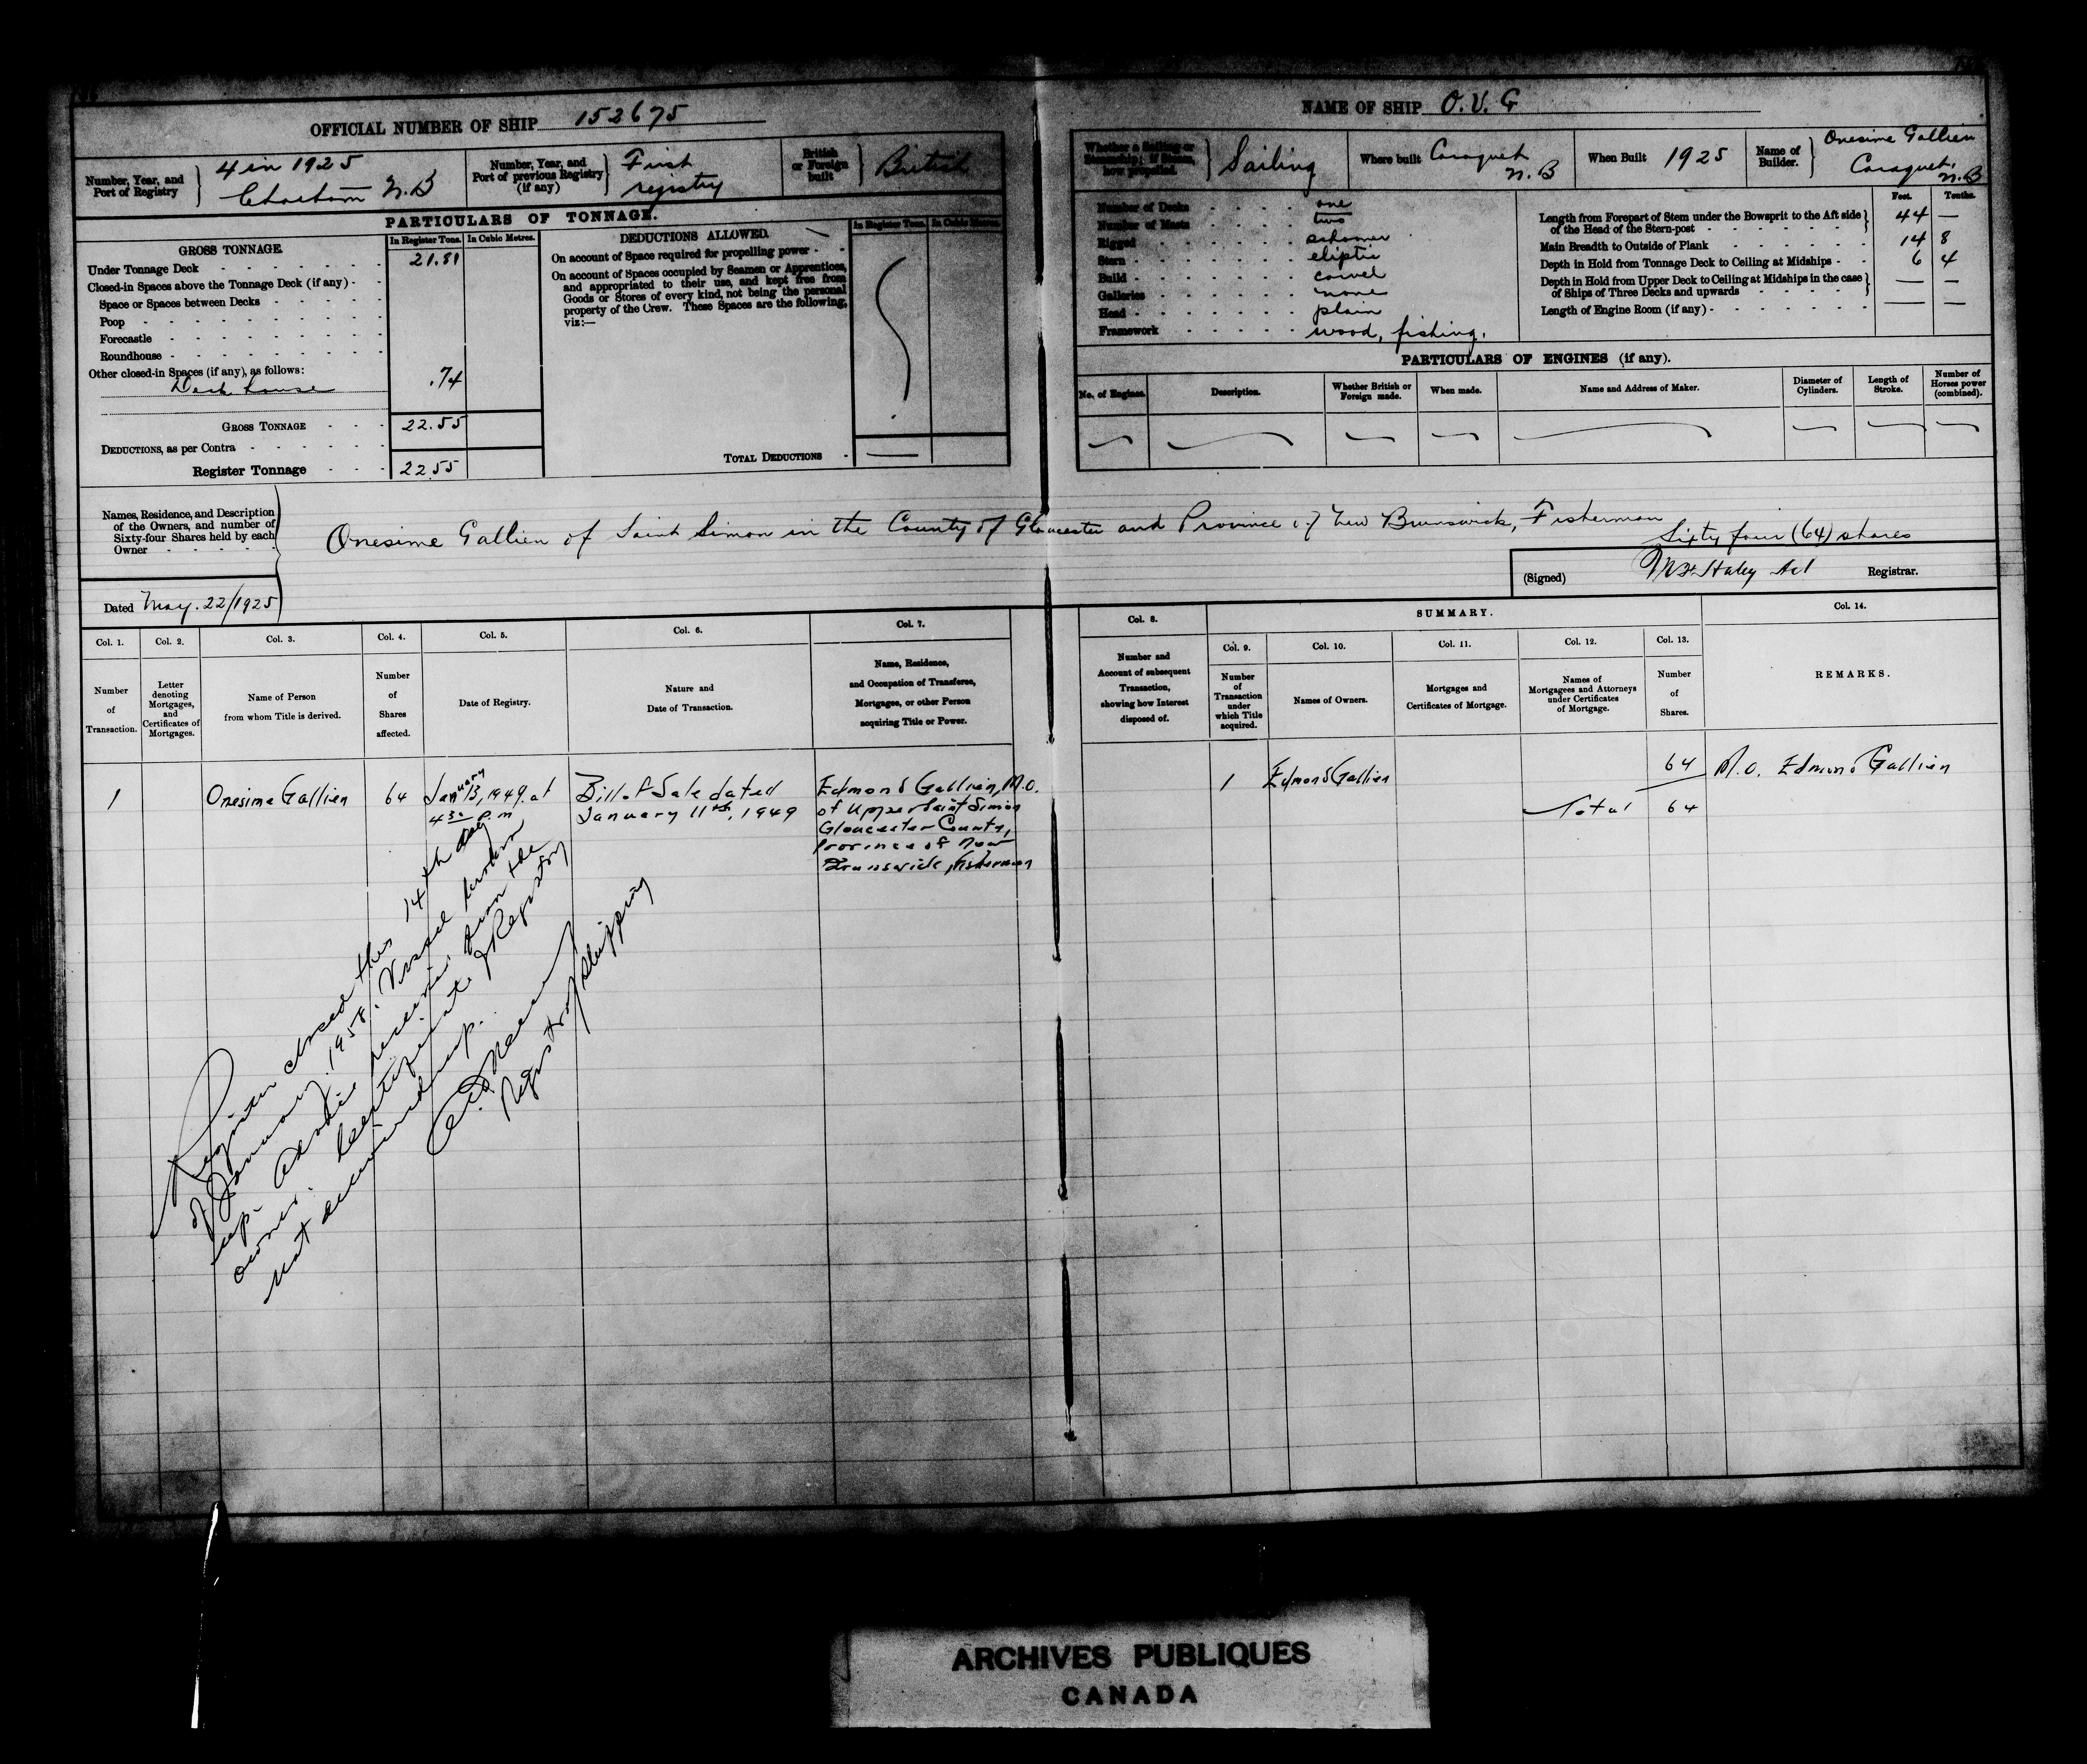 OFFICIAL NUMBER OF SHIP 152675
Number, Year, and Port of Registry
4 in 1925
Chatham N.B
Number, Year, and Port of previous Registry (if any)
First registry
British or Foreign built
British
PARTICULARS OF TONNAGE.
GROSS TONNAGE. In Register Tons. In Cubic Metres.
Under Tonnage Deck 21.81
Closed-in Spaces above the Tonnage Deck (if any)
Space or Spaces between Decks
Poop
Forecastle
Roundhouse
Other closed-in Spaces (if any), as follows:
Deck house .74
GROSS TONNAGE 22.55
DEDUCTIONS, as per Contra
Register Tonnage 22.55
DEDUCTIONS ALLOWED. In Register Tons. In Cubic Metres.
On account of Space required for propelling power
On account of Spaces occupied by Seamen or Apprentices,
and appropriated to their use, and kept free from
Goods or Stores of every kind, not being the personal
property of the Crew. These Spaces are the following,
viz:—
TOTAL DEDUCTIONS —
NAME OF SHIP O. V. G
Whether a Sailing or Steamship; if Steam, how propelled.
Sailing
Where built Caraquet N.B
When Built 1925
Name of Builder.
Onesime Gallien
Caraquet, N.B
Number of Decks one
Number of Masts two
Rigged schooner
Stern eliptic
Build carvel
Galleries none
Head plain
Framework wood, fishing.
Feet. Tenths.
Length from Forepart of Stem under the Bowsprit to the Aft side of the Head of the Stern-post 44 —
Main Breadth to Outside of Plank 14 8
Depth in Hold from Tonnage Deck to Ceiling at Midships 6 4
Depth in Hold from Upper Deck to Ceiling at Midships in the case of Ships of Three Decks and upwards — —
Length of Engine Room (if any) — —
PARTICULARS OF ENGINES (if any).
No. of Engines.
Description.
Whether British or Foreign made.
When made.
Name and Address of Maker.
Diameter of Cylinders.
Length of Stroke.
Number of Horses power (combined).
Names, Residence, and Description
of the Owners, and number of
Sixty-four Shares held by each
Owner
Onesime Gallien of Saint Simon in the County of Gloucester and Province of New Brunswick, Fisherman
Sixty four (64) shares
Dated May. 22/1925
(Signed) Haley Registrar.
Col. 1. Number of Transaction.
Col. 2. Letter denoting Mortgages, and Certificates of Mortgages.
Col. 3. Name of Person from whom Title is derived.
Col. 4. Number of Shares affected.
Col. 5. Date of Registry.
Col. 6. Nature and Date of Transaction.
Col. 7. Name, Residence, and Occupation of Transferee, Mortgagee, or other Person acquiring Title or Power.
Col. 8. Number and Account of subsequent Transaction, showing how Interest disposed of.
SUMMARY.
Col. 9. Number of Transaction under which Title acquired.
Col. 10. Names of Owners.
Col. 11. Mortgages and Certificates of Mortgage.
Col. 12. Names of Mortgagees and Attorneys under Certificates of Mortgage.
Col. 13. Number of Shares.
Col. 14. REMARKS.
1
Onesime Gallien
64
January 13, 1949. at
4 30 P.m
Bill of Sale dated
January 11th, 1949
Edmond Gallien, M.O.
of Upper Saint Simon
Gloucester County,
Province of New
Brunswick, fisherman
1
Edmond Gallien
64
Total 64
M.O. Edmond Gallien
Register closed this 14th day
of January, 1958. Vessel broken
up. Advice received from the
owner. Certificate of Registry
not surrendered up.
Registrar of Shipping
ARCHIVES PUBLIQUES
CANADA